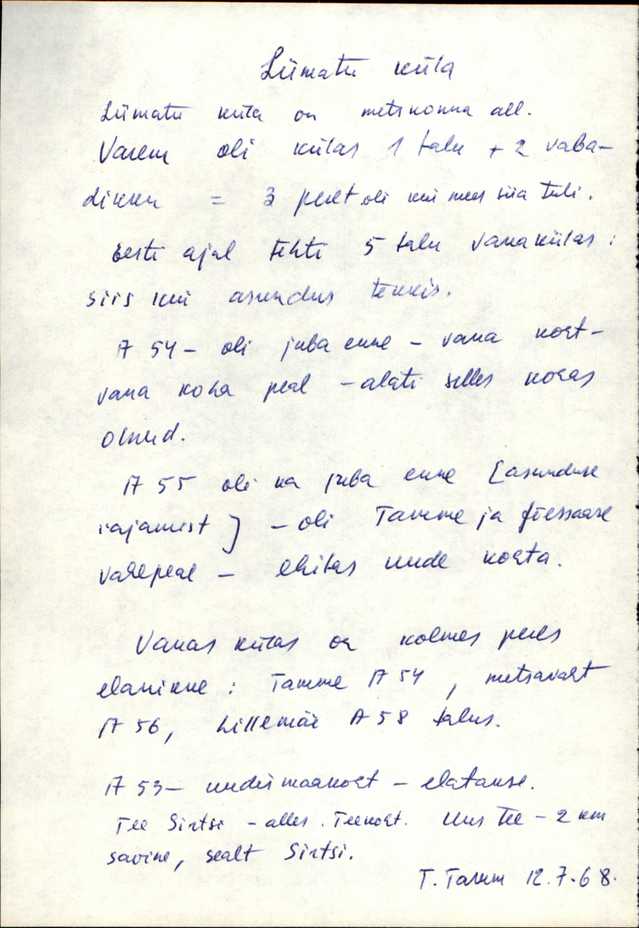 Liimatu küla
Liimatu küla on metskonna all.
Varem oli külas 1 talu + 2 vaba-
dikku = 3 peret oli kui mees siia tuli.
Eesti ajal tehti 5 talu vanakülas:
siis kui asundus tekkis.
A 54 - oli juba enne - vana kort-
vana koha peal - alati selles kohas
olnud.
A 55 oli ka juba enne [asunduse
rajamist] - oli Tamme ja
vahepeal - ehitas uude kohta.
Vanas külas on kolmes peres
elanikke: Tamme A 54, metsavaht
A 56, Lillemäe A 58 talus.
A 53 - uudismaakoht - elatakse.
Tee Sirtsi - alles. Teekoht. Uus tee - 2 km
savine, sealt Sirtsi.
T. Tamm 12.7.68.